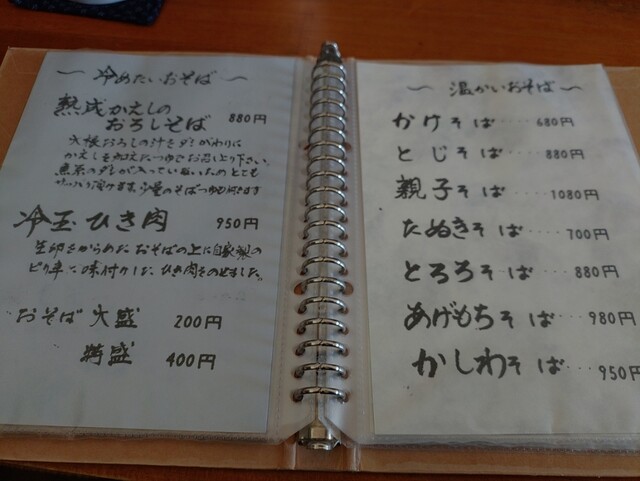 〜 冷めたいおそば 〜
熟成かえしの
おろしそば 880円
大根おろしの汁をダシがわりに
かえしを加えたつゆでお召し上り下さい。
魚系のダシが入っていないため とても
さっぱり頂けます。少量のそばつゆも付きます
冷玉 ひき肉 950円
生卵をからめた おそばの上に自家製の
ピリ辛で味付けした ひき肉をのせました。
おそば 大盛 200円
特盛 400円
〜 温かいおそば 〜
かけそば････680円
とじそば････880円
親子そば････1080円
たぬきそば････700円
とろろそば････880円
あげもちそば････980円
かしわそば････950円